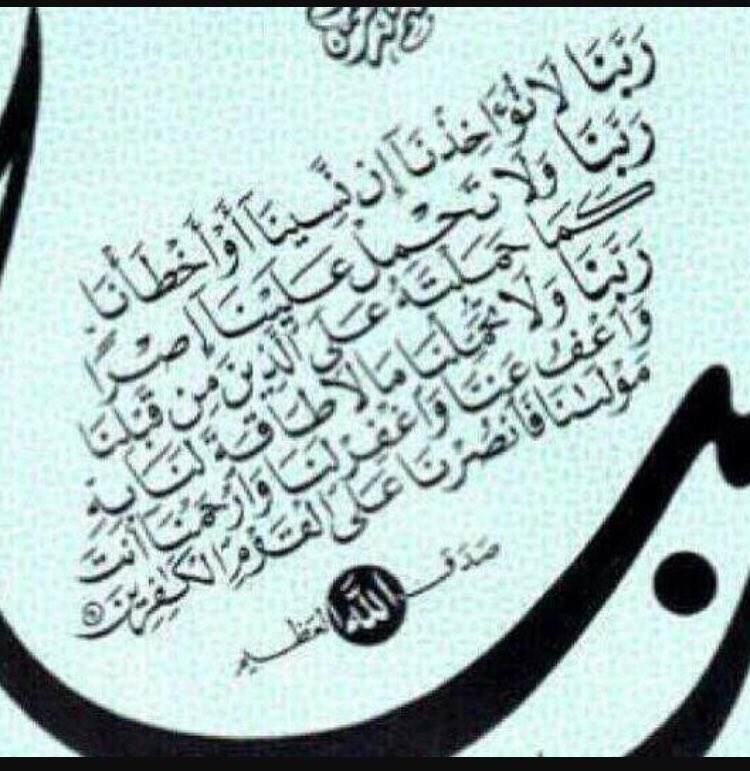 رَبَّنَا لَا تُؤَاخِذْنَا إِن نَّسِينَا أَوْ أَخْطَأْنَا
رَبَّنَا وَلَا تَحْمِلْ عَلَيْنَا إِصْرًا
كَمَا حَمَلْتَهُ عَلَى الَّذِينَ مِن قَبْلِنَا
رَبَّنَا وَلَا تُحَمِّلْنَا مَا لَا طَاقَةَ لَنَا بِهِ
وَاعْفُ عَنَّا وَاغْفِرْ لَنَا وَارْحَمْنَا أَنتَ
مَوْلَىٰنَا فَانصُرْنَا عَلَى الْقَوْمِ الْكَٰفِرِينَ
صدق الله العظيم